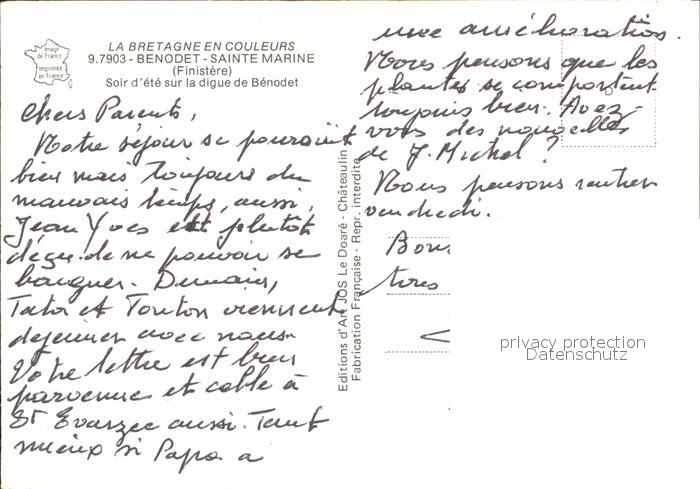 Image
de France
Imprimée
en France
LA BRETAGNE EN COULEURS
9.7903 - BENODET - SAINTE MARINE
(Finistère)
Soir d'été sur la digue de Bénodet
Chers Parents,
Notre séjour se poursuit
bien mais toujours du
mauvais temps, aussi,
Jean Yves est plutôt
déçu de ne pouvoir se
baigner. Demain,
Tata et Tonton viennent
dejeuner avec nous.
Votre lettre est bien
parvenue et celle à
St Evarzec aussi. Tant
mieux si Papa a
une amélioration.
Nous pensons que les
plantes se comportent
toujours bien. Avez-
vous des nouvelles
de J. Michel ?
Nous pensons rentrer
vendredi.
Bons
tous
Editions d'Art JOS Le Doaré - Châteaulin
Fabrication Française - Repr. interdite
privacy protection
Datenschutz